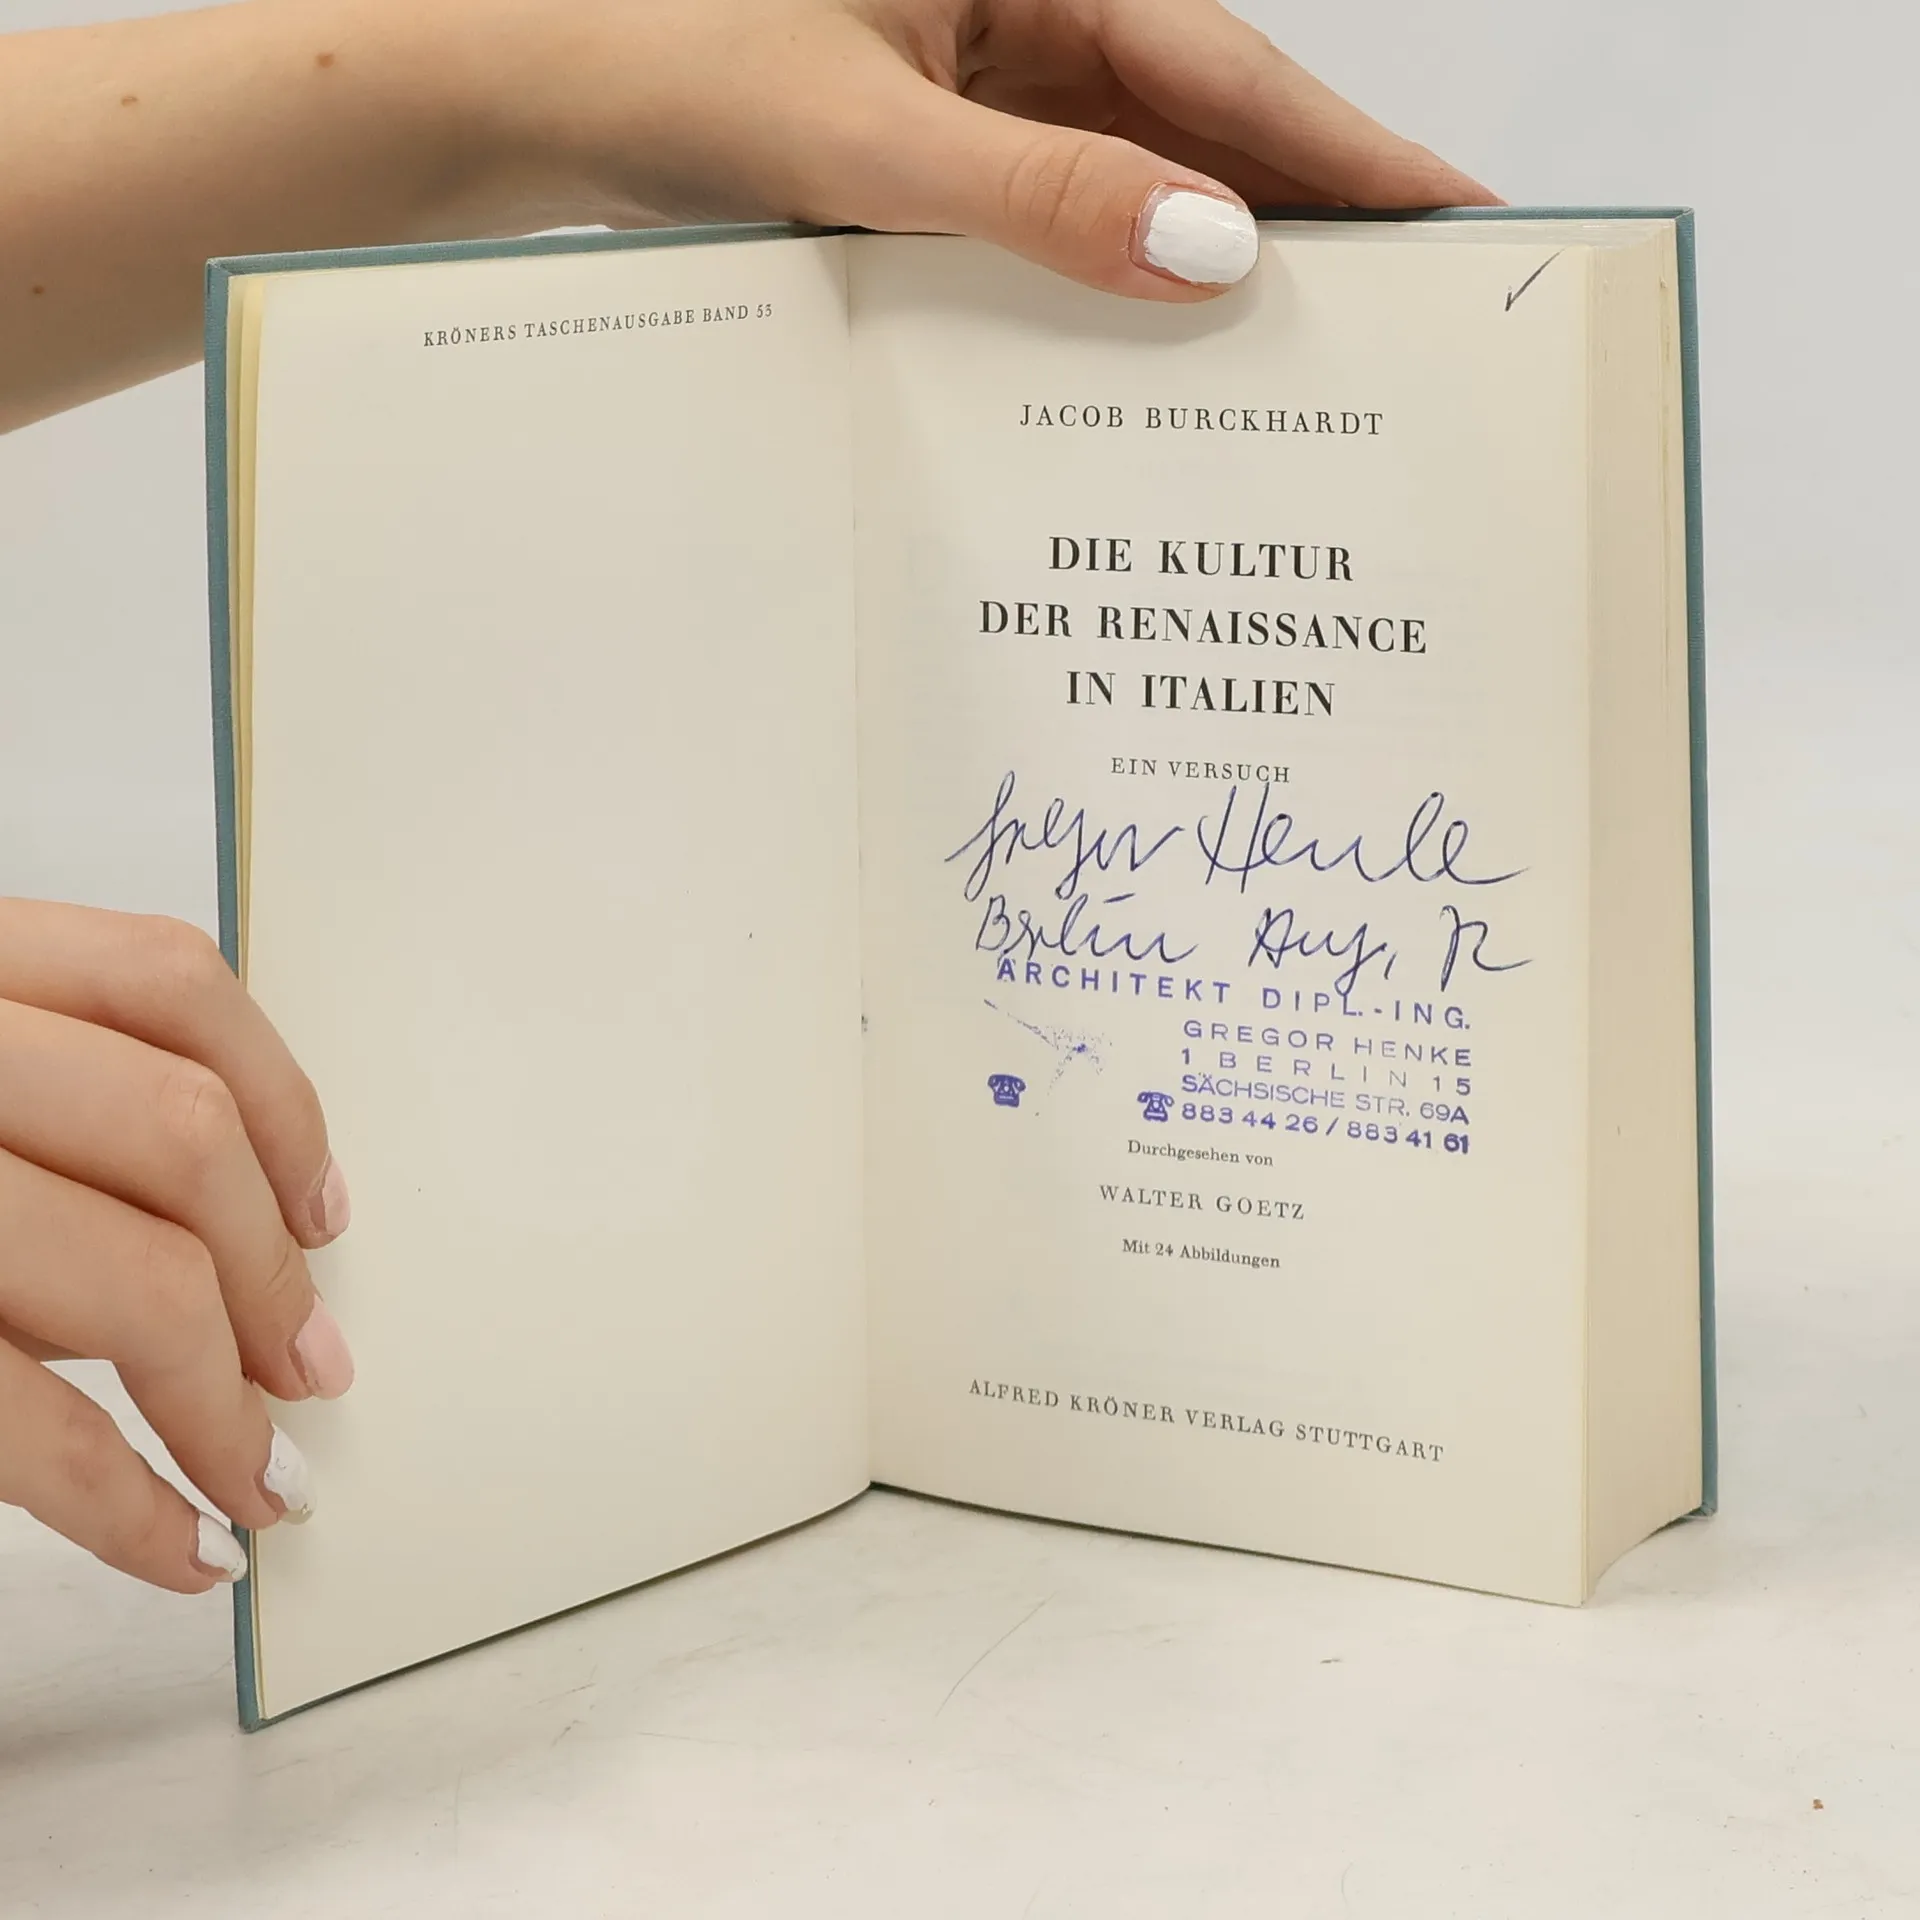 KRÖNERS TASCHENAUSGABE BAND 53
JACOB BURCKHARDT
DIE KULTUR
DER RENAISSANCE
IN ITALIEN
EIN VERSUCH
Gregor Henke
Berlin Aug,
ARCHITEKT DIPL.-ING.
GREGOR HENKE
1 BERLIN 15
SÄCHSISCHE STR. 69A
☎ ☎ 883 44 26 / 883 41 61
Durchgesehen von
WALTER GOETZ
Mit 24 Abbildungen
ALFRED KRÖNER VERLAG STUTTGART